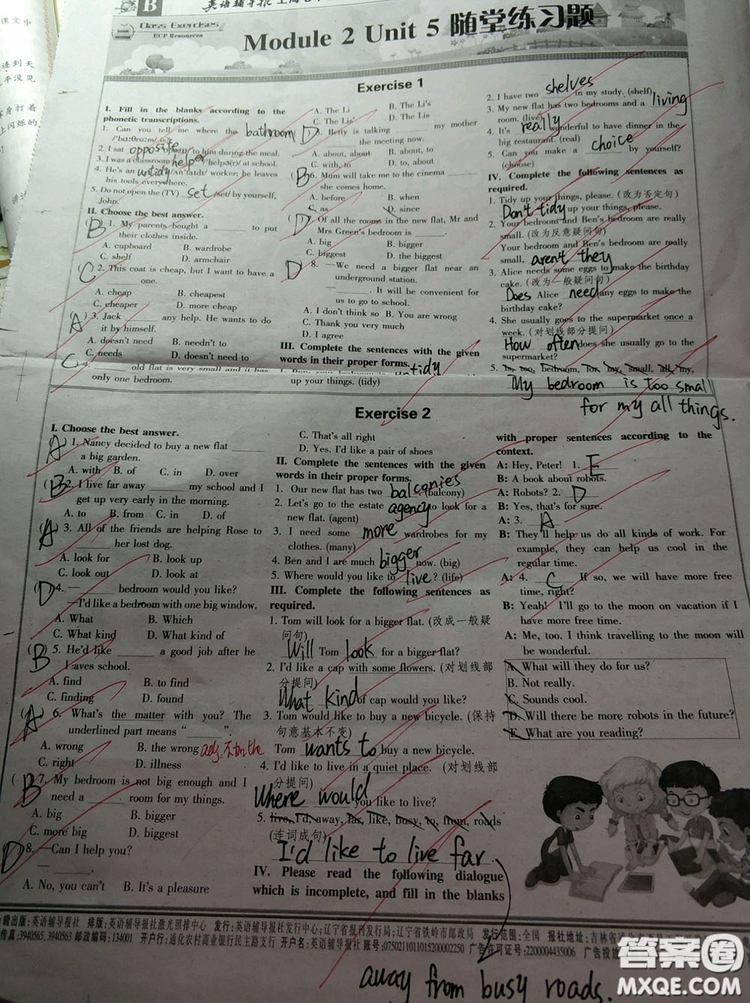 B
Class Exercises
ECP Resources
Module 2 Unit 5 随堂练习题
Exercise 1
I. Fill in the blanks according to the phonetic transcriptions.
1. Can you tell me where the bathroom
2. I sat opposite to him during the meal.
3. I was a classroom helper at school.
4. He's an untidy man: he leaves
his tools everywhere.
5. Do not open the (TV) set /set/ by yourself,
John.
II. Choose the best answer.
B 1. My parents bought a to put
their clothes inside.
A. cupboard B. wardrobe
C. shelf D. armchair
C 2. This coat is cheap, but I want to have a
one.
A. cheap B. cheapest
C. cheaper D. more cheap
A ) 3. Jack any help. He wants to do
it by himself.
A. doesn't need B. needn't to
C. needs D. doesn't need to
C 4. old flat is very small and it has
only one bedroom.
A. The Li B. The Li's
C. The Lis' D. The Lis
D Betty is talking my mother
the meeting now.
A. about, about B. about, to
C. with, to D. to, about
(B 6. Mum will take me to the cinema
she comes home.
A. before B. when
C. as D. since
(D Of all the rooms in the new flat, Mr and
Mrs Green's bedroom is .
A. big B. bigger
C. biggest D. the biggest
D 8. —We need a bigger flat near an
underground station.
— It will be convenient for
us to go to school.
A. I don't think so B. You are wrong
C. Thank you very much
D. I agree
III. Complete the sentences with the given
words in their proper forms.
untidy
up your things. (tidy)
2. I have two shelves in my study. (shelf)
3. My new flat has two bedrooms and a living
room. (live)
4. It's really wonderful to have dinner in the
big restaurant. (real)
5. Can you make a choice by yourself?
(choose)
IV. Complete the following sentences as
required.
1. Tidy up your things, please. (改为否定句)
Don't tidy up your things, please.
2. Your bedroom and Ben's bedroom are really
small. (改为反意疑问句)
Your bedroom and Ben's bedroom are really
small, aren't they
3. Alice needs some eggs to make the birthday
cake. (改为一般疑问句)
Does Alice need any eggs to make the
birthday cake?
4. She usually goes to the supermarket once a
week. (对划线部分提问)
How often does she usually go to the
supermarket?
5. is, too, bedroom, for, my, small, all, my,
My bedroom is too small
for my all things.
Exercise 2
I. Choose the best answer.
A 1. Nancy decided to buy a new flat
a big garden.
A. with B. of C. in D. over
B 2. I live far away my school and I
get up very early in the morning.
A. to B. from C. in D. of
(A ) 3. All of the friends are helping Rose to
her lost dog.
A. look for B. look up
C. look out D. look at
(D 4. — bedroom would you like?
—I'd like a bedroom with one big window.
A. What B. Which
C. What kind D. What kind of
(B 5. He'd like a good job after he
leaves school.
A. find B. to find
C. finding D. found
(A ) 6. What's the matter with you? The
underlined part means “ ”.
A. wrong B. the wrong adj.不加the
C. right D. illness
( B 7. My bedroom is not big enough and I
need a room for my things.
A. big B. bigger
C. more big D. biggest
D 8. —Can I help you?
— .
A. No, you can't B. It's a pleasure
C. That's all right
D. Yes. I'd like a pair of shoes
II. Complete the sentences with the given
words in their proper forms.
1. Our new flat has two balconies. (balcony)
2. Let's go to the estate agency to look for a
new flat. (agent)
3. I need some more wardrobes for my
clothes. (many)
4. Ben and I are much bigger now. (big)
5. Where would you like to live? (life)
III. Complete the following sentences as
required.
1. Tom will look for a bigger flat. (改成一般疑
问句)
Will Tom look for a bigger flat?
2. I'd like a cap with some flowers. (对划线部
分提问)
What kind of cap would you like?
3. Tom would like to buy a new bicycle. (保持
句意基本不变)
Tom wants to buy a new bicycle.
4. I'd like to live in a quiet place. (对划线部
分提问)
Where would you like to live?
5. live, I'd, away, far, like, busy, to, from, roads
(连词成句)
I'd like to live far
away from busy roads.
IV. Please read the following dialogue
which is incomplete, and fill in the blanks
with proper sentences according to the
context.
A: Hey, Peter! 1. E
B: A book about robots.
A: Robots? 2. D
B: Yes, that's for sure.
A: 3. A
B: They'll help us do all kinds of work. For
example, they can help us cool in the
regular time.
A: 4. C If so, we will have more free
time, right?
B: Yeah! I'll go to the moon on vacation if I
have more free time.
A: Me, too. I think travelling to the moon will
be wonderful.
A. What will they do for us?
B. Not really.
C. Sounds cool.
D. Will there be more robots in the future?
E. What are you reading?
答案圈
MXQE.COM